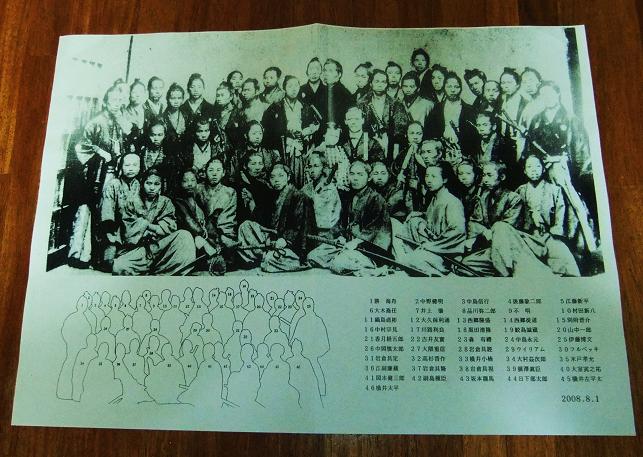 1勝 海舟 2中野健明 3中島信行 4後藤象二郎 5江藤新平
6大木喬任 7井上 馨 8品川弥二郎 9不 明 10村田新八
11 12大久保利通 13西郷隆盛 14西郷従道 15別府晋介
16中村宗見 17川路利良 18 19鮫島誠蔵 20山中一郎
21香月経五郎 22吉井友實 23森 有禮 24中島永元 25伊藤博文
26中岡慎太郎 27大隈重信 28岩倉具 29ウイリアム 30フルベッキ
31岩倉具定 32高杉晋作 33横井小楠 34大村益次郎 35木戸孝允
36江副廉蔵 37岩倉具 38岩倉具視 39 40大室
41岡本健三郎 42副島種臣 43坂本龍馬 44日下部太郎 45横井左平太
46横井太平
2008.8.1